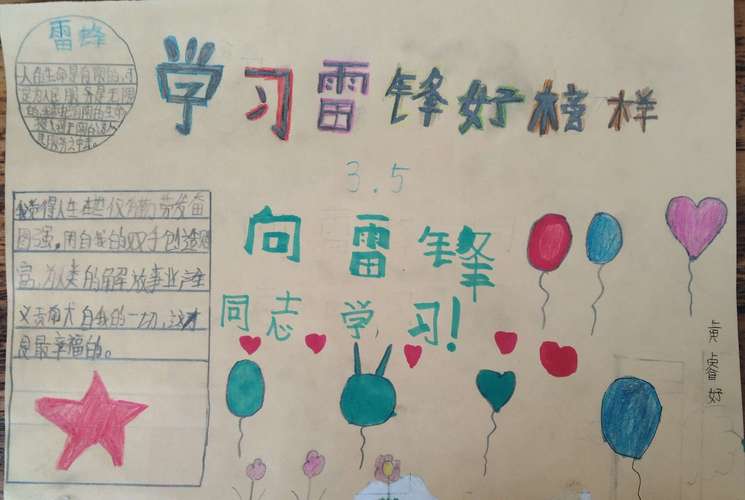 雷蜂
人的生命是有限的，可
是为人民服务是无限
的，我要把有限的生命
投入到无限的为人
民服务之中去。
学习雷锋好榜样
3.5
向雷锋
同志学习！
我觉得人生在世仅有勤劳发奋
图强，用自我的双手创造财
富，为人类的解放事业产主
义贡献自我的一切，这才
是最幸福的。